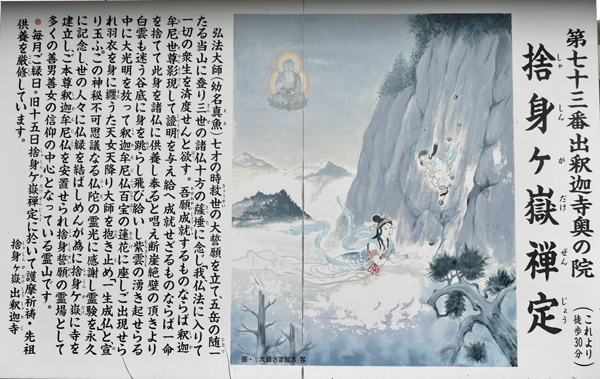 第七十三番出釈迦寺奥の院
捨身ヶ嶽禅定
しゃしんがだけぜんじょう
(これより
徒歩30分)
弘法大師(幼名真魚)七才の時救世の大誓願を立て五岳の随一
たる当山に登り三世の諸仏十方の薩埵に念じ我仏法に入りて
一切の衆生を済度せんと欲す。吾願成就するものならば釈迦
牟尼世尊影現して證明を与え給へ成就せざるものならば一命
を捨てて此身を諸仏に供養し奉ると唱え断崖絶壁の頂きより
白雲も迷う谷底に身を跳らし飛び給いし紫雲の湧き起せらる
中に大光明を放って釈迦牟尼仏百宝の蓮花に座しご出現せら
れ羽衣を身に纏うた天女天降り大師を抱き止め、一生成仏と宣
り玉ふ。この神秘不可思議なる仏陀の霊光に感謝し霊験を永久
に記念し、世の人々に仏縁を結ばしめんが為に捨身ヶ嶽に寺を
建立し、ご本尊釈迦牟尼仏を安置せられ捨身誓願の霊場として
多くの善男善女の信仰の中心となっている霊山です。
●毎月ご縁日。旧十五日捨身ヶ嶽禅定に於いて護摩祈祷・先祖
供養を厳修しています。
捨身ヶ嶽出釈迦寺
画・大師さま絵本 写